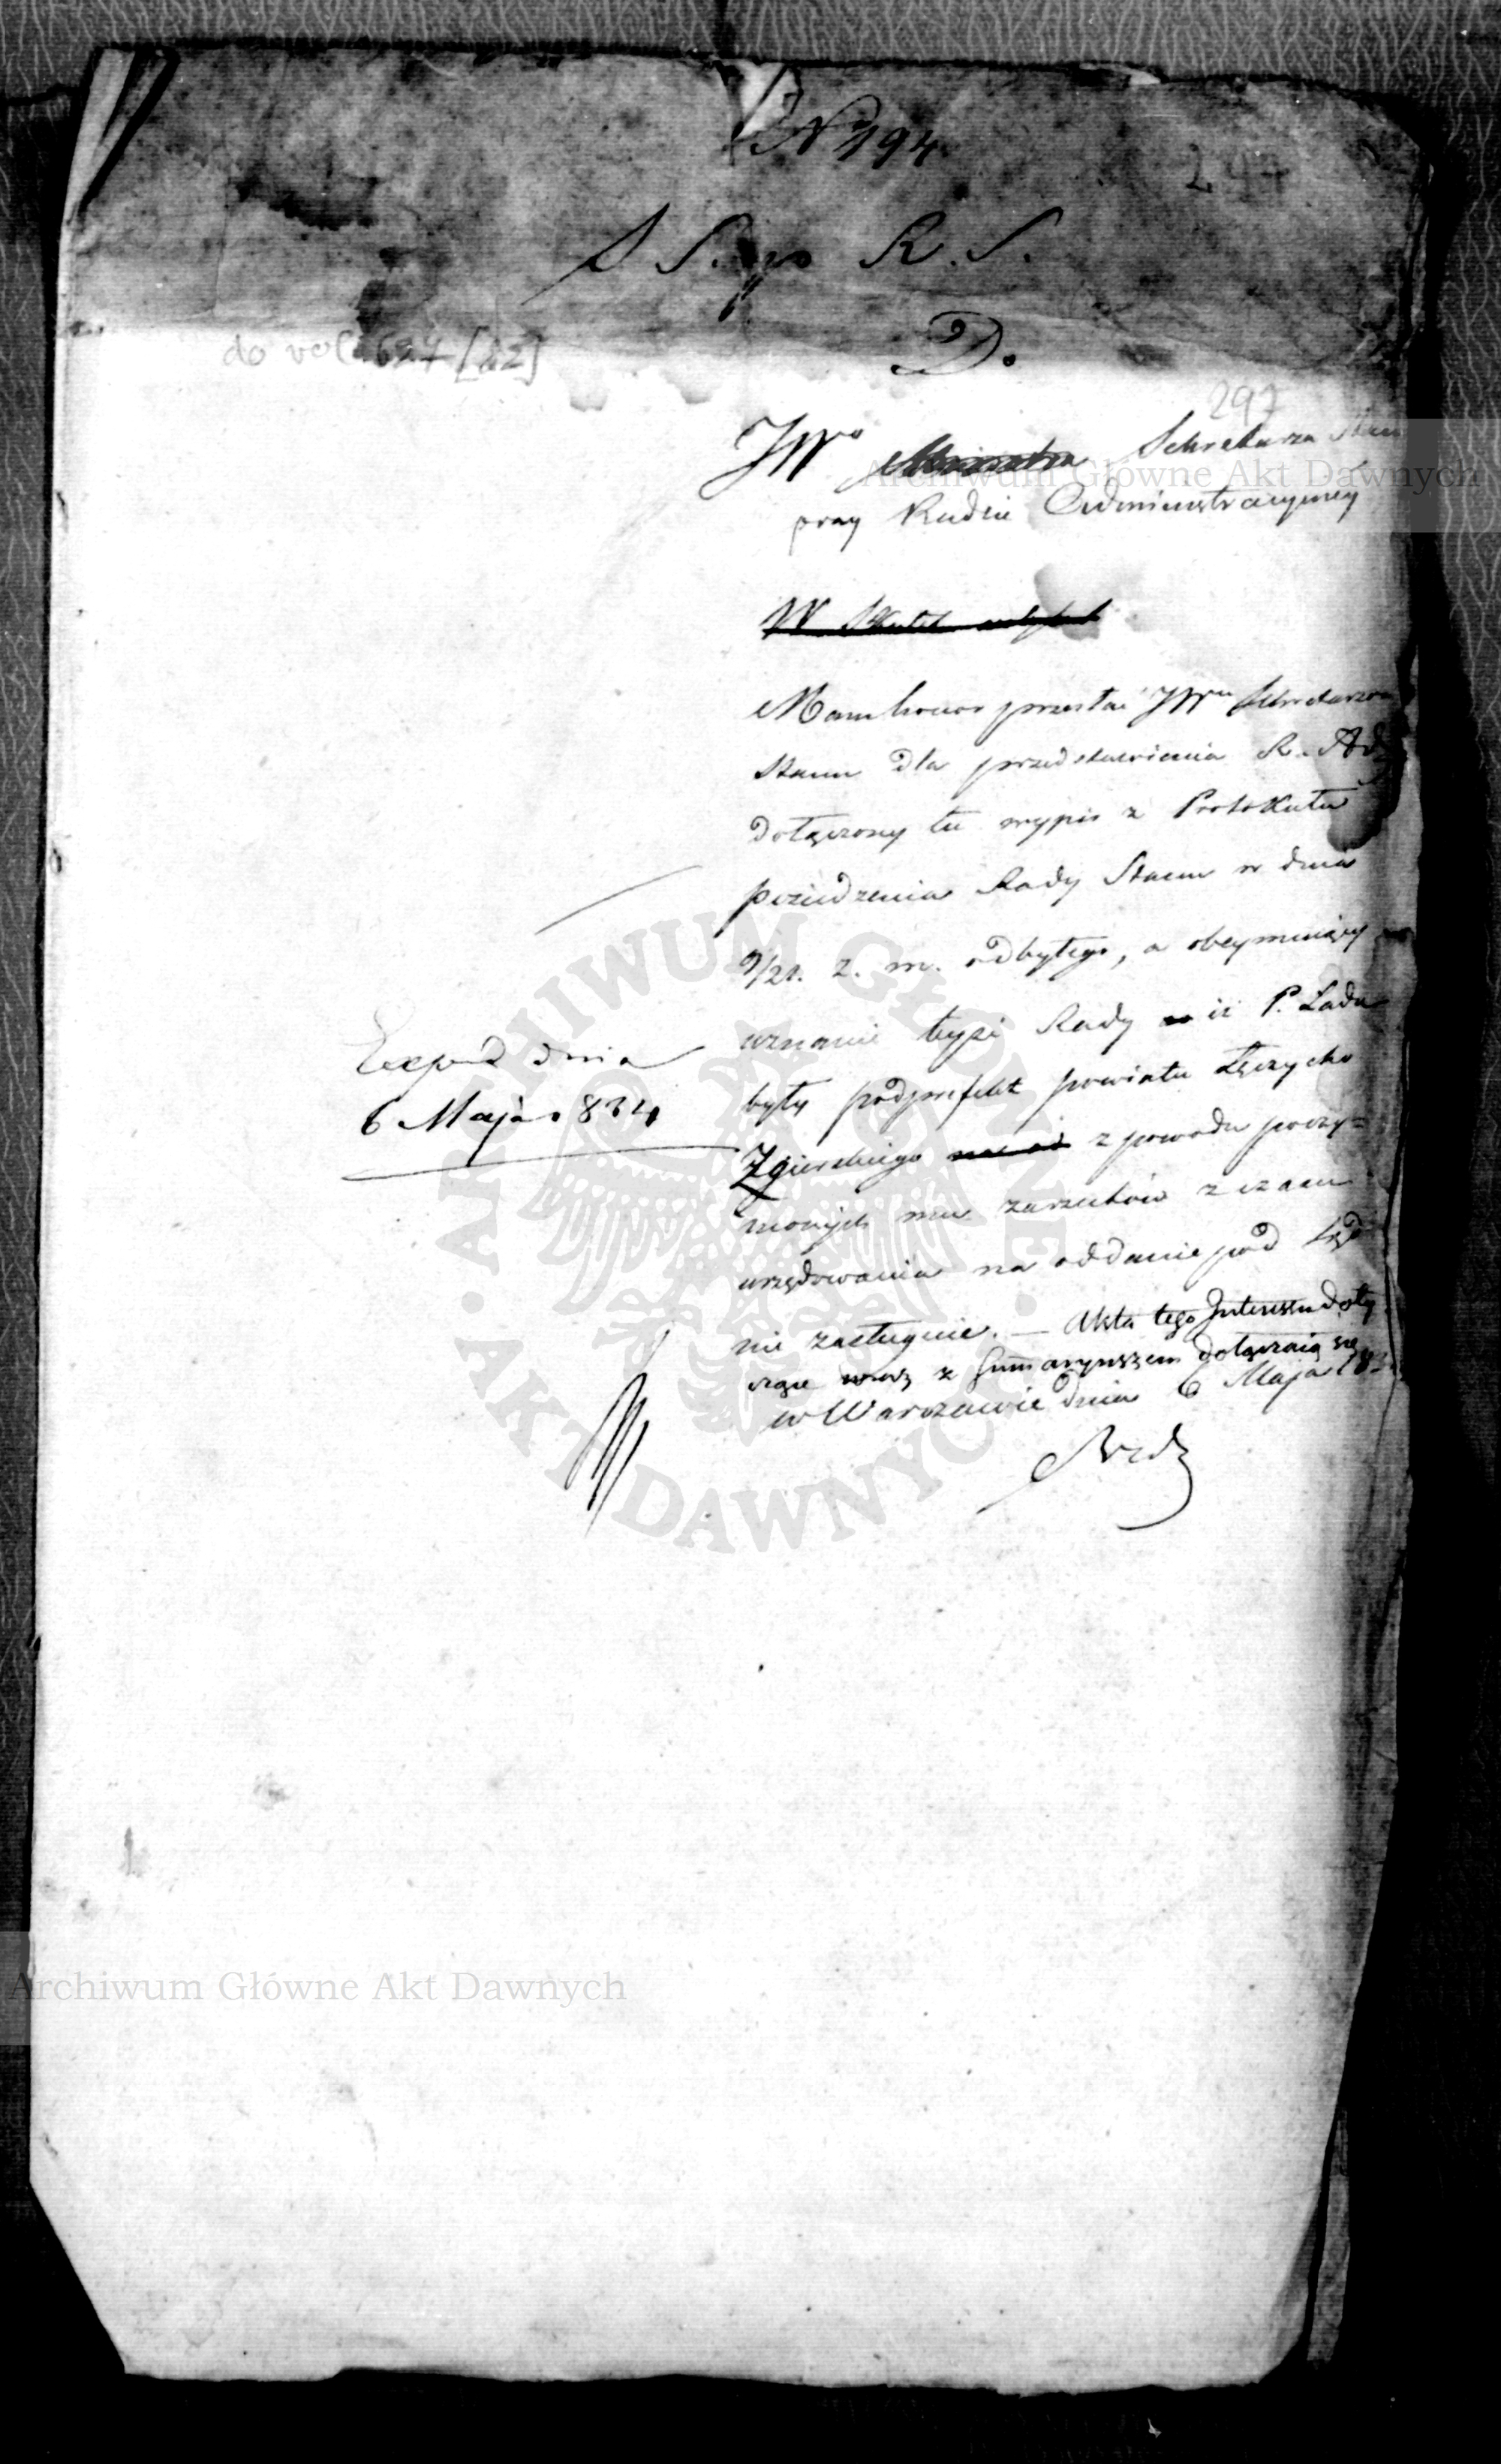 N 194
247
S S. go R. S.
D.
do vol. 627 [82]
297
JW° Ministra Sekretarza Stanu
przy Radzie Administracyiney
W skutek
Mam honor przesłać JWmu Sekretarzowi
Stanu dla przedstawienia R. Ad
dołączony tu wypis z Protokułu
posiedzenia Rady Stanu w dniu
9/21. z. m. odbytego, a obeymuiący
uznanie teyże Rady iż P. Łada
były podprefekt powiatu Łęczycko
Zgierskiego z powodu poczy=
nionych mu zarzutów z czasu
urzędowania na oddanie pod Sąd
nie zasługuie. — Akta tego Interessu doty
czące wraz z Summaryuszem dołączaią się
w Warszawie dnia 6 Maja 183
Exped dnia
6 Maja 834
Archiwum Główne Akt Dawnych
Archiwum Główne Akt Dawnych
ARCHIWUM GŁÓWNE AKT DAWNYCH